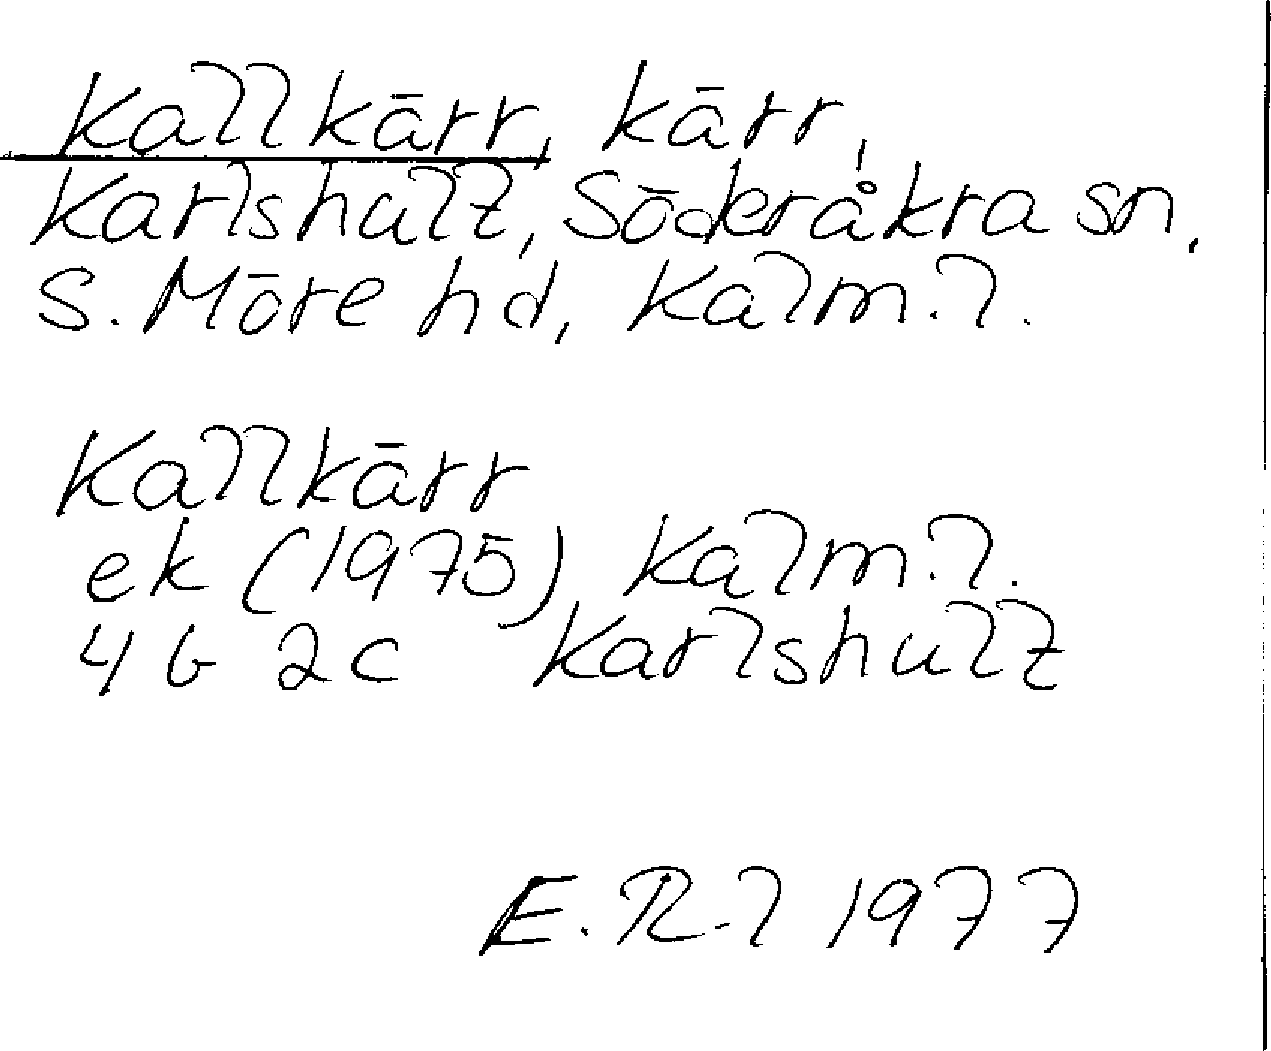 Kallkärr, kärr,
Karlshult, Söderåkra sn,
S. Möre hd, Kalm.l.
Kallkärr
ek (1975) Kalm.l.
4 G 2c Karlshult
E.R-l 1977